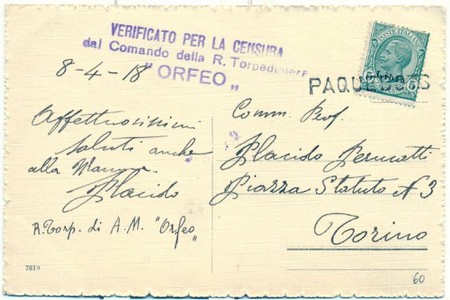 VERIFICATO PER LA CENSURA
dal Comando della R. Torpediniera
"ORFEO"
8-4-18
POSTE ITALIANE
5 5
PAQUEBOTS
Affettuosissimi
saluti anche
alla Mamma
Placido
R. Torp. di A. M. "Orfeo"
Comm. Prof.
Placido Perucatti
Piazza Statuto N 3
Torino
7819
60